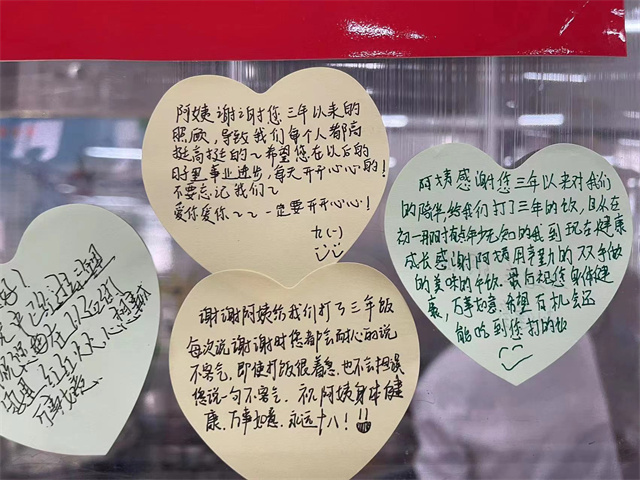 阿姨谢谢您三年以来的
照顾，导致我们每个人都高
挺高挺的~希望您在以后的
日子里事业进步，每天开开心心的！
不要忘记我们~
爱你爱你~~一定要开开心心！
九(一)
谢谢阿姨给我们打了三年饭
每次说谢谢时您都会耐心的说
不客气，即使打饭很着急，也不会耽误
您说一句不客气。祝阿姨身体健
康，万事如意，永远十八！
阿姨感谢您三年以来对我们
的陪伴，给我们打了三年的饭，自从在
初一那时有点年少无知的我到现在健康
成长感谢阿姨用辛勤的双手做
的美味的午饭。最后祝您身体健
康，万事如意。希望有机会还
能吃到您打的饭
万事如意